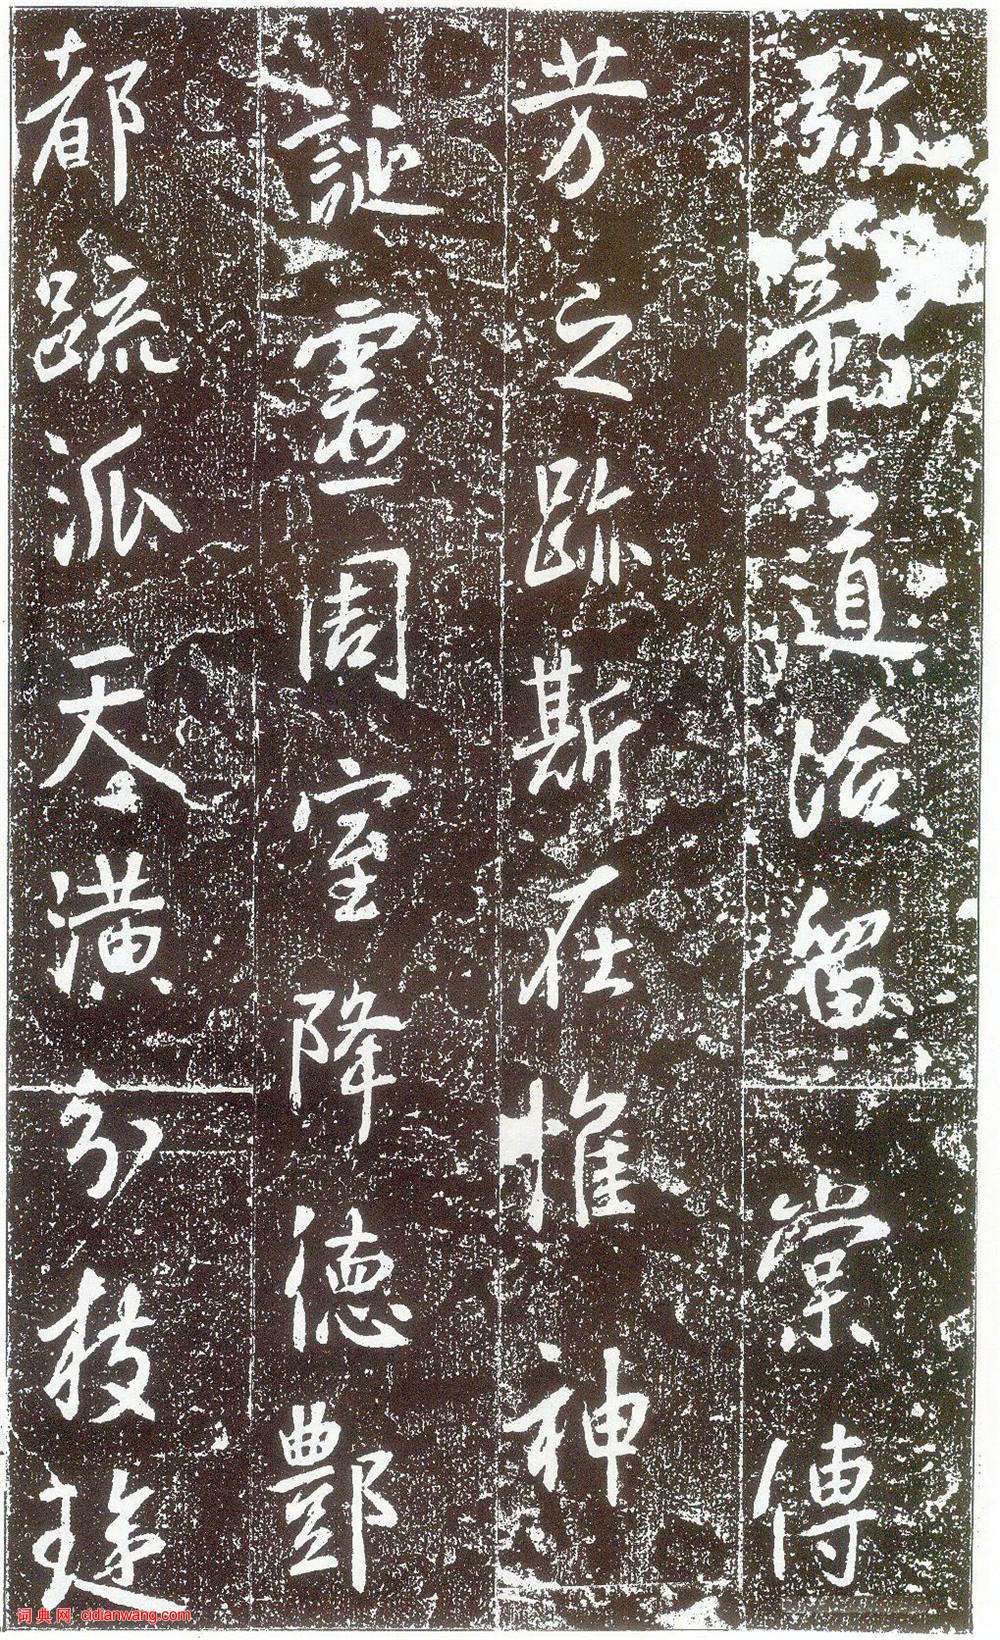 弥章道洽留棠傳
芳之跡斯在惟神
誕靈周室降德酆
都疏派天潢分枝璇
词典网 cidianwang.com